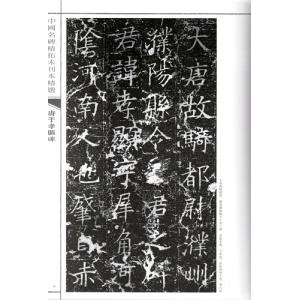 大唐故騎都尉濮州
濮陽縣令 君之
君諱孝顯字犀角
陰河南人也肇自赤
中國名碑精拓未刊本精選
唐于孝顯碑